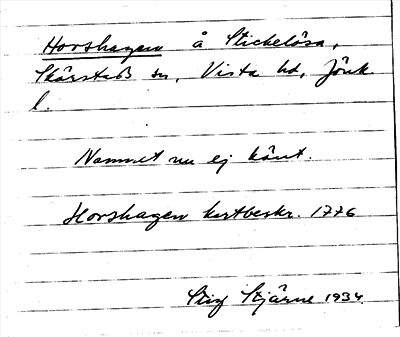 Horshagen å Stickelösa,
Skärstads sn, Vista hd, Jönk.
l.
Namnet nu ej känt.
Horshagen kartbeskr. 1776
Stig Stjärne 1934.